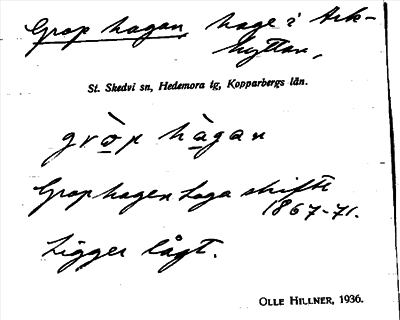 Grop hagen hage i Ark-
hyttan,
St. Skedvi sn, Hedemora tg, Kopparbergs län.
gròp hàgan
Grophagen Laga skifte
1867-71.
Ligger lågt.
OLLE HILLNER, 1936.